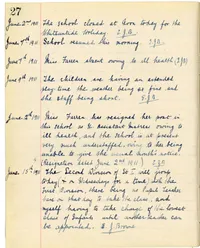 27
June 2nd 1911 The School closed at Noon today for the
Whitsuntide Holiday. E.J.B.
June 7th 1911 School resumed this morning. E.J.B.
June 7th 1911 Miss Farren absent owing to ill health (EJB)
June 9th 1911 The children are having an extended
play time the weather being so fine and
the staff being short. E.J.B.
Miss Farren has resigned her post in
this school as Assistant Mistress owing
to ill health, and the school is at present
very much understaffed, owing to her being
unable to give the usual month's notice.
(Resignation dates June 2nd 1911) E.J.B.
June 15th 1911 The Second Division of St I, and Group
today & on Wednesdays for a time, and the
First Division, there being no Pupil Teacher
here on that day to take its class, and
myself having to take charge of the lowest
class of Infants until another teacher can
be appointed. E J Broome